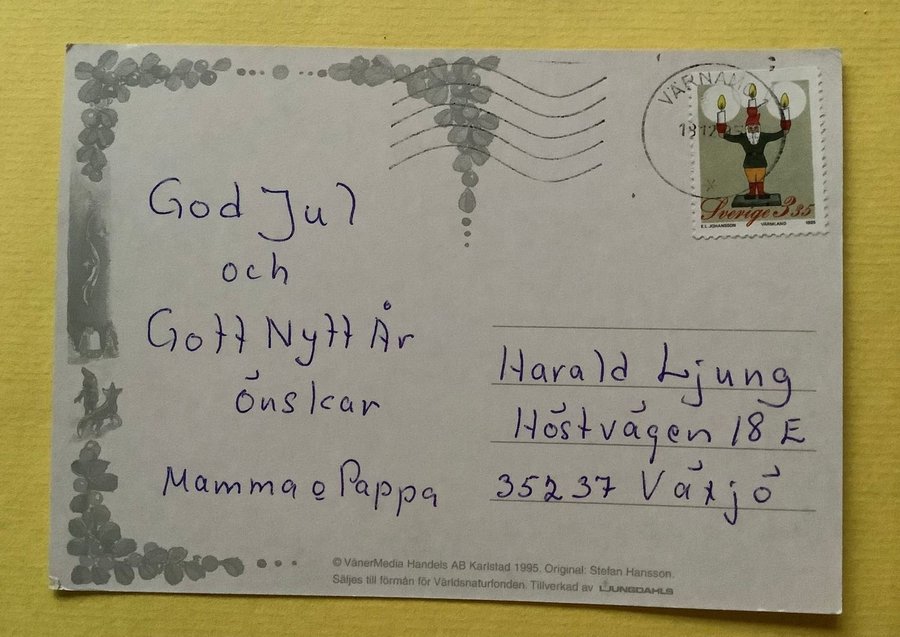 God Jul
och
Gott Nytt År
önskar
Mamma o Pappa
VÄRNAMO 1
Sverige 3 35
E.I. JOHANSSON VÄRMLAND 1995
Harald Ljung
Höstvägen 18 E
35237 Växjö
© VänerMedia Handels AB Karlstad 1995. Original: Stefan Hansson.
Säljes till förmån för Världsnaturfonden. Tillverkad av LJUNGDAHLS